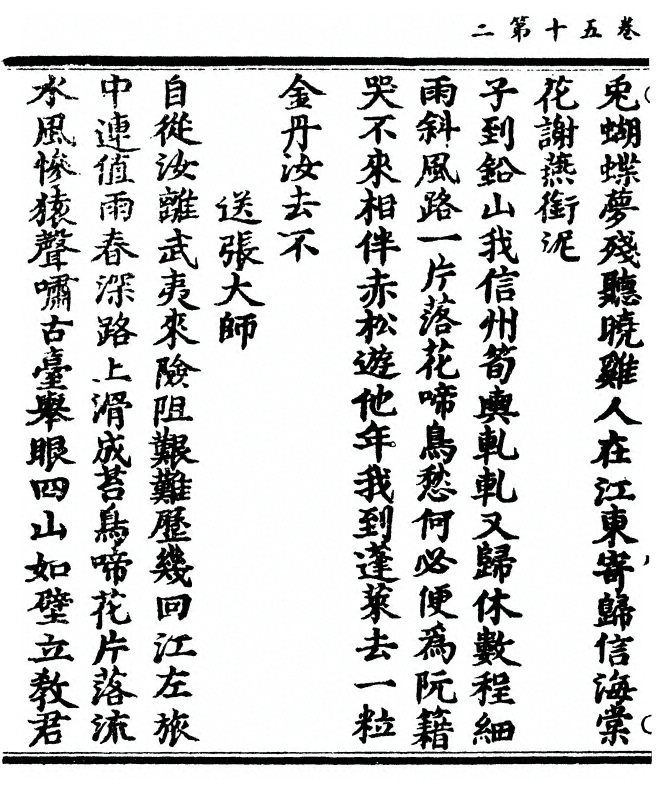 卷五十第二
兎蝴蝶夢殘聽曉雞人在江東寄歸信海棠
花謝燕銜泥
子到鉛山我信州筍輿軋軋又歸休數程細
雨斜風路一片落花啼鳥愁何必便爲阮籍
哭不來相伴赤松遊他年我到蓬萊去一粒
金丹汝去不
送張大師
自從汝離武夷來險阻艱難歷幾回江左旅
中連值雨春深路上滑成苔鳥啼花片落流
水風慘猿聲嘯古臺舉眼四山如壁立教君